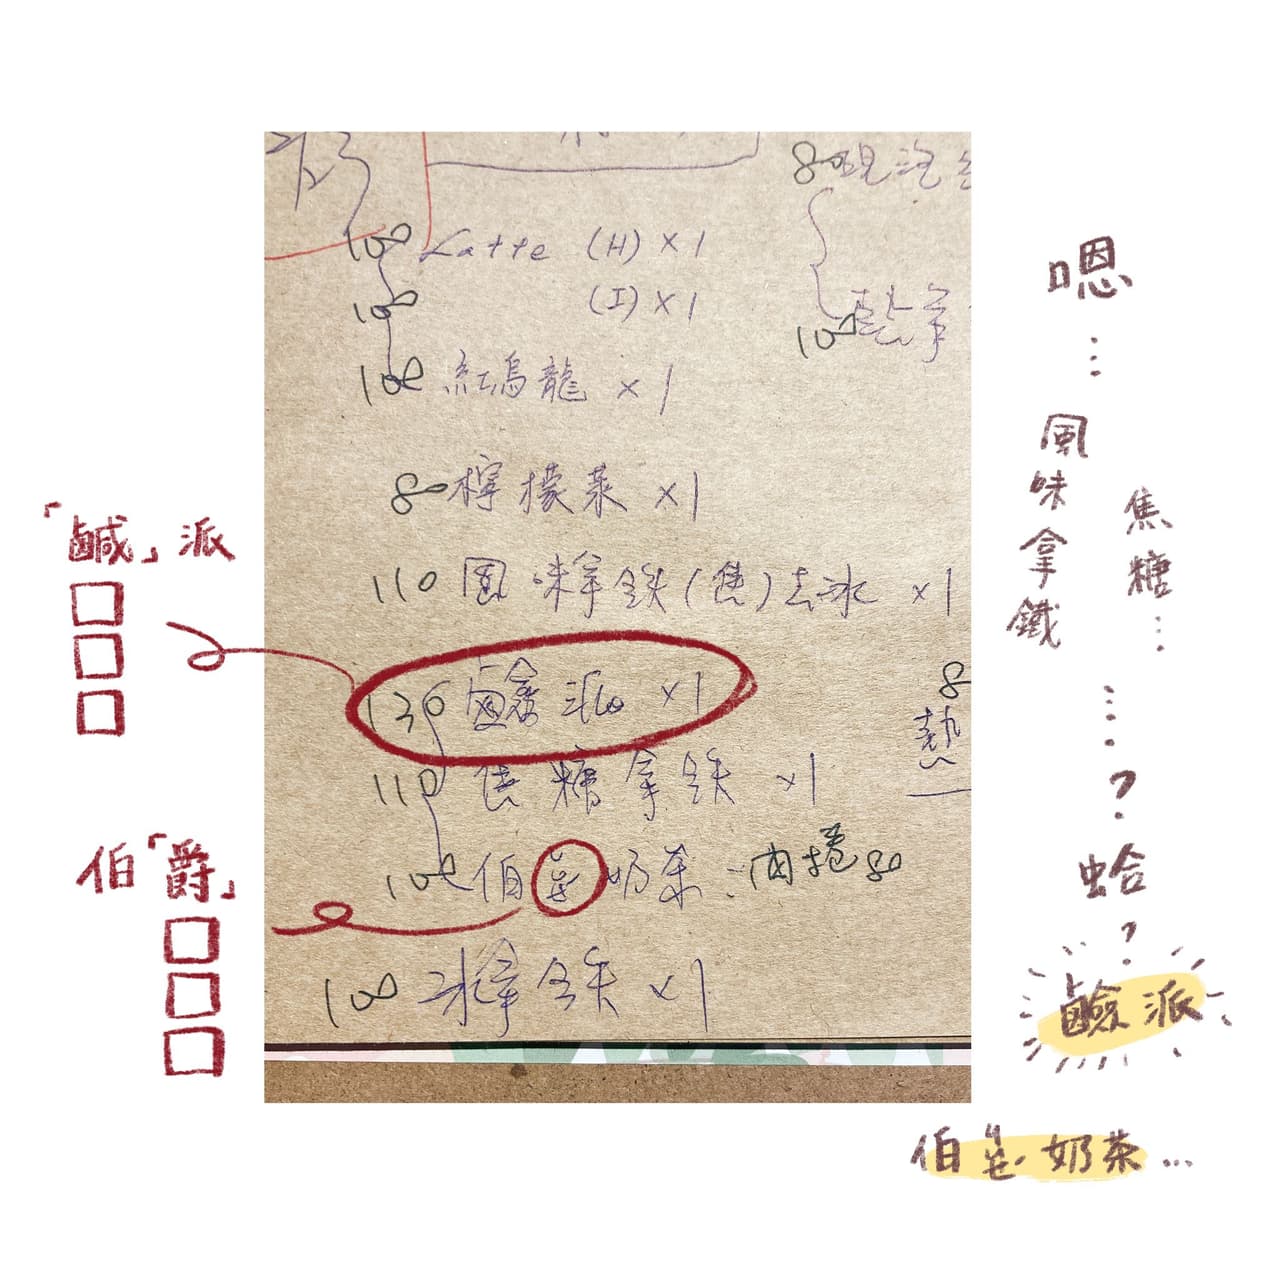 80 現泡
100 Latte (H) × 1
100 (I) × 1
100 拿
100 紅烏龍 × 1
80 檸檬菜 × 1
110 風味拿鉄(焦)去冰 × 1
130 鹼派 × 1
110 焦糖拿鉄 × 1
100 伯 奶茶 肉捲 80
100 冰拿鉄 × 1
8
熱
「鹹」派
□
□
□
伯「爵」
□
□
□
嗯
…
風味拿鐵
焦糖…
…
?
蛤
?
鹼派
伯 奶茶…